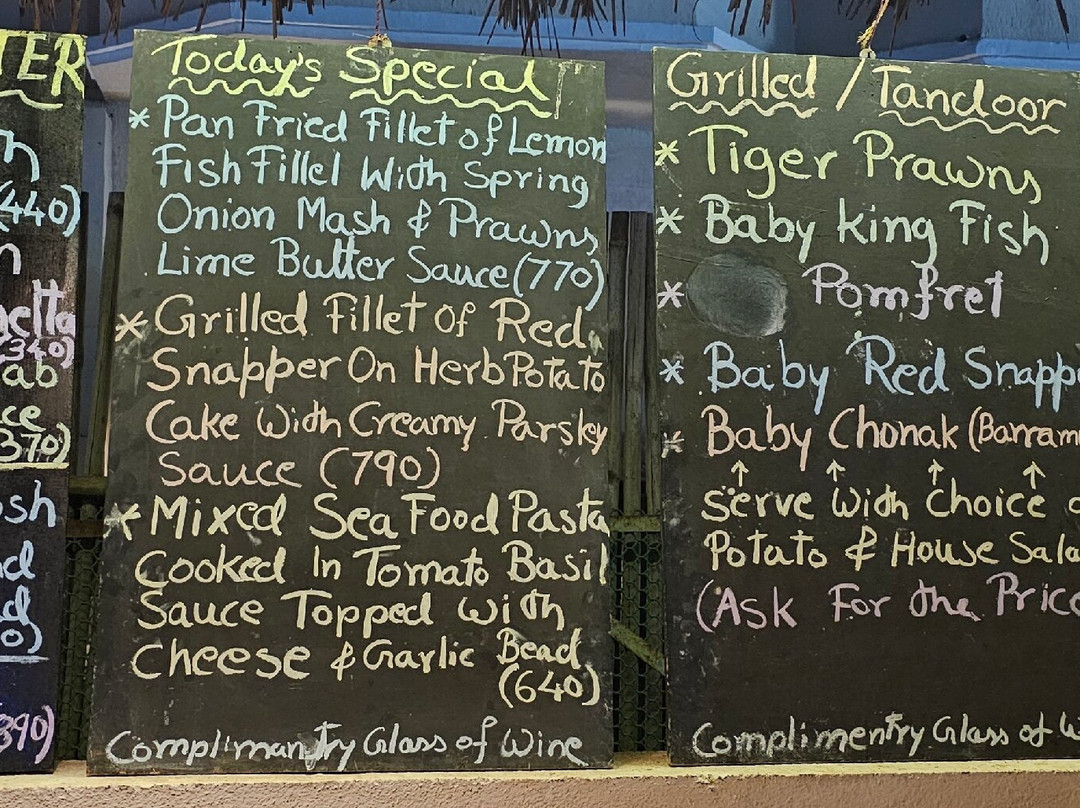 TER
(440)
340)
ab
ce
370)
osh
890)
Today's Special
* Pan Fried Fillet of Lemon
Fish Fillel With Spring
Onion Mash & Prawns
Lime Butter Sauce (770)
* Grilled Fillet Of Red
Snapper On Herb Potato
Cake With Creamy Parsley
Sauce (790)
* Mixed Sea Food Pasta
Cooked In Tomato Basil
Sauce Topped with
Cheese & Garlic Bead
(640)
Complimantry Glass of Wine
Grilled / Tandoor
* Tiger Prawns
* Baby King Fish
* Pomfret
* Baby Red Snapp
* Baby Chonak (Barram
↑ ↑ ↑ ↑
Serve With Choice o
Potato & House Sala
(Ask For the Price
Complimentry Glass of W